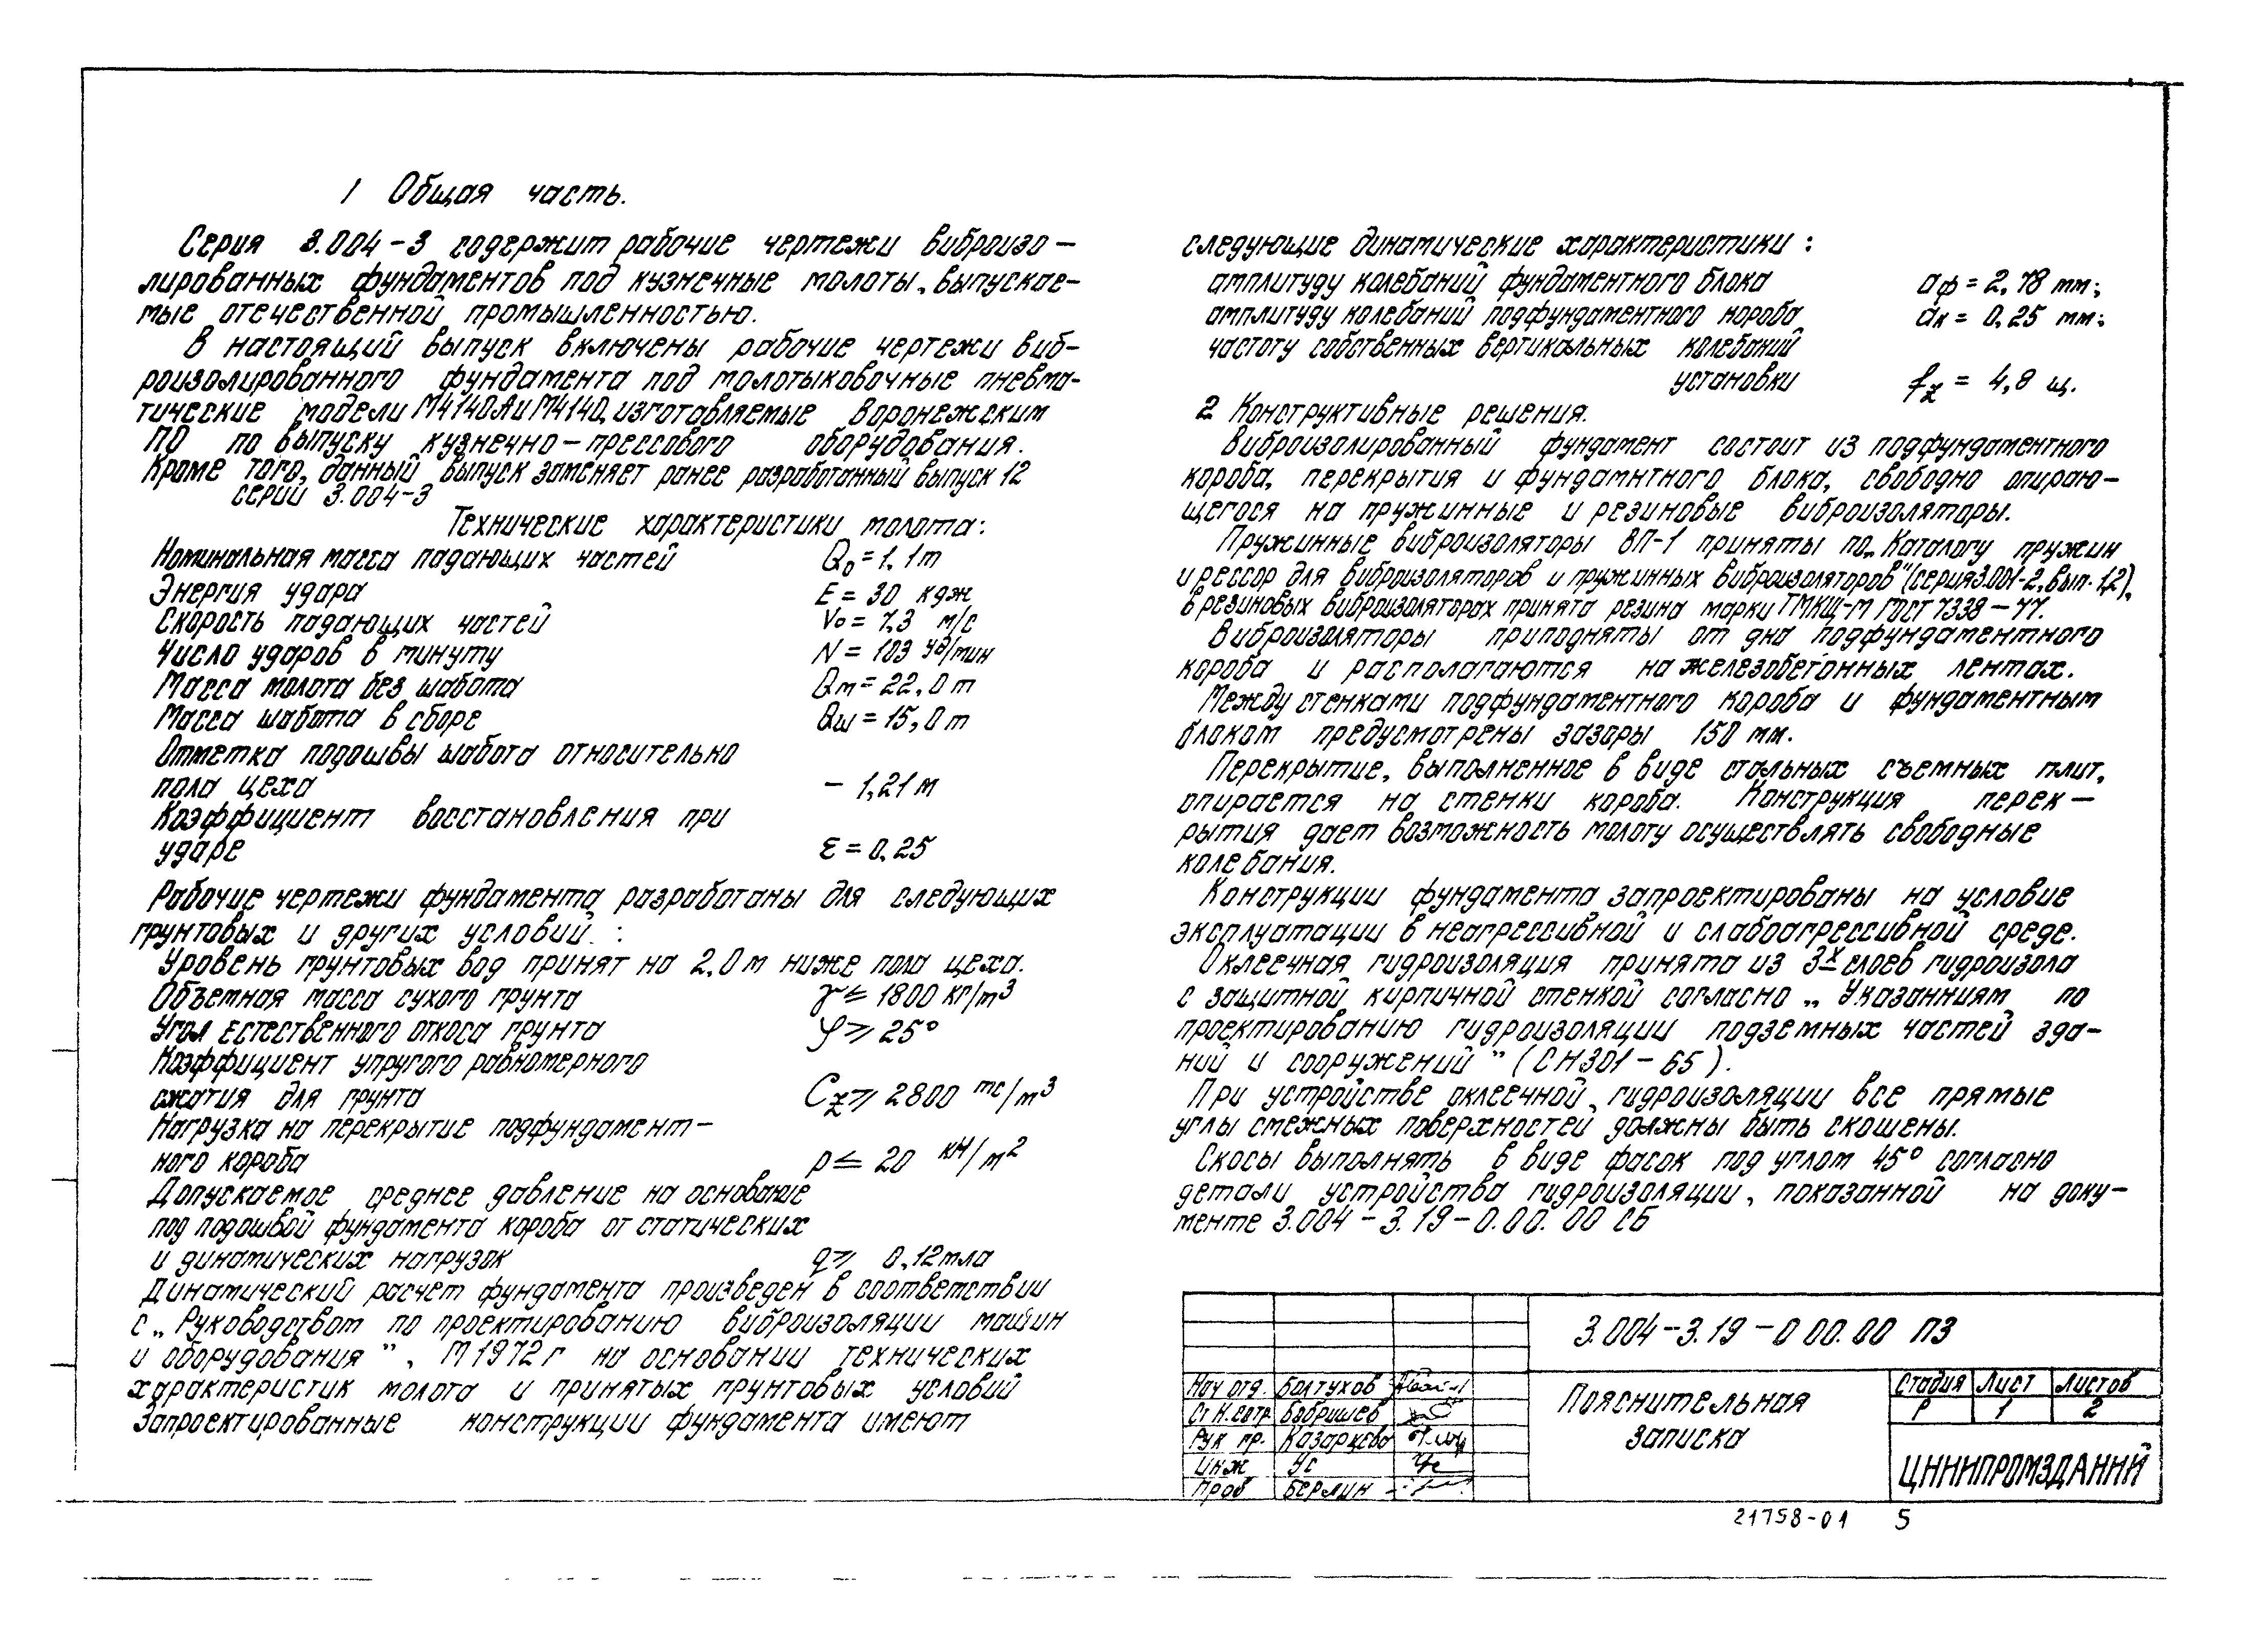 1 Общая часть.
Серия 3.004-3 содержит рабочие чертежи виброизо-
лированных фундаментов под кузнечные молоты, выпускае-
мые отечественной промышленностью.
В настоящий выпуск включены рабочие чертежи виб-
роизолированного фундамента под молоты ковочные пневма-
тические модели М4140А и М4140, изготавляемые Воронежским
ПО по выпуску кузнечно-прессового оборудования.
Кроме того, данный выпуск заменяет ранее разработанный выпуск 12
серии 3.004-3
Технические характеристики молота:
Номинальная масса падающих частей Q₀ = 1,1 т
Энергия удара E = 30 кдж
Скорость падающих частей V₀ = 7,3 м/с
Число ударов в минуту N = 103 уд/мин
Масса молота без шабота Qм = 22,0 т
Масса шабота в сборе Qш = 15,0 т
Отметка подошвы шабота относительно
пола цеха - 1,21 м
Коэффициент восстановления при
ударе ε = 0,25
Рабочие чертежи фундамента разработаны для следующих
грунтовых и других условий :
Уровень грунтовых вод принят на 2,0 м ниже пола цеха.
Объемная масса сухого грунта γ ≤ 1800 кг/м³
Угол естественного откоса грунта φ ⩾ 25°
Коэффициент упругого равномерного
сжатия для грунта Cz ⩾ 2800 тс/м³
Нагрузка на перекрытие подфундамент-
ного короба p ≤ 20 кН/м²
Допускаемое среднее давление на основание
под подошвой фундамента короба от статических
и динамических нагрузок q ⩾ 0,12 мпа
Динамический расчет фундамента произведен в соответствии
с „Руководством по проектированию виброизоляции машин
и оборудования", М 1972 г на основании технических
характеристик молота и принятых грунтовых условий
Запроектированные конструкции фундамента имеют
следующие динамические характеристики :
амплитуду колебаний фундаментного блока aф = 2,78 мм;
амплитуду колебаний подфундаментного короба aк = 0,25 мм;
частоту собственных вертикальных колебаний
установки fz = 4,8 щ.
2 Конструктивные решения.
Виброизолированный фундамент состоит из подфундаментного
короба, перекрытия и фундамнтного блока, свободно опираю-
щегося на пружинные и резиновые виброизоляторы.
Пружинные виброизоляторы ВП-1 приняты по „Каталогу пружин
и рессор для виброизоляторов и пружинных виброизоляторов" (серия 3.001-2, вып. 1,2),
в резиновых виброизоляторах принята резина марки ТМКЩ-М ГОСТ 7338-77.
Виброизоляторы приподняты от дна подфундаментного
короба и располагаются на железобетонных лентах.
Между стенками подфундаментного короба и фундаментным
блоком предусмотрены зазоры 150 мм.
Перекрытие, выполненное в виде стальных съемных плит,
опирается на стенки короба. Конструкция перек-
рытия дает возможность молоту осуществлять свободные
колебания.
Конструкции фундамента запроектированы на условие
эксплуатации в неагрессивной и слабоагрессивной среде.
Оклеечная гидроизоляция принята из 3х слоев гидроизола
с защитной кирпичной стенкой согласно „Указанниям по
проектированию гидроизоляции подземных частей зда-
ний и сооружений" (СН 301-65).
При устройстве оклеечной гидроизоляции все прямые
углы смежных поверхностей должны быть скошены.
Скосы выполнять в виде фасок под углом 45° согласно
детали устройства гидроизоляции, показанной на доку-
менте 3.004-3.19-0.00.00 СБ
3.004-3.19-0 00.00 ПЗ
Нач отд. Болтухов
Ст н.сотр Бобришев
Рук пр. Казарцева
Инж Ус
Проб Берлин
Пояснительная
записка
Стадия Лист Листов
Р 1 2
ЦНИИПРОМЗДАНИЙ
21758-01 5